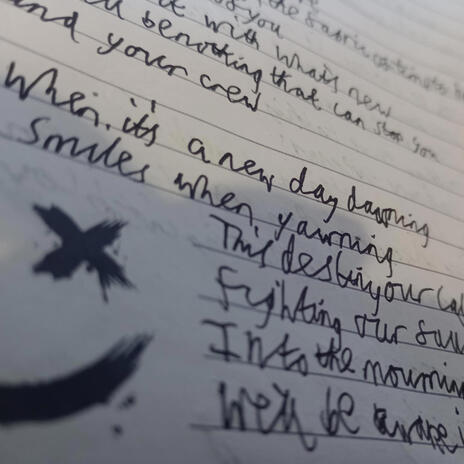 the fabric
of you
with whats new
nothing that can stop you
and your crew
When its a new day dawning
Smiles when yawning
This destiny our
Fighting our
Into the mourning
be